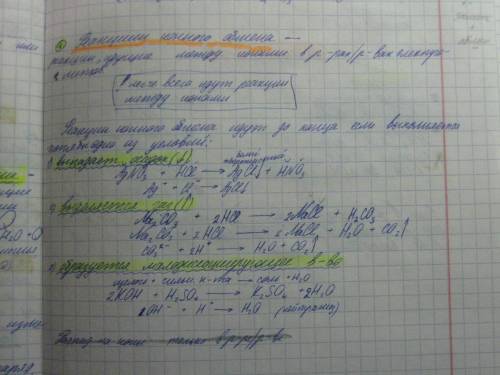 Реакции ионного обмена —
реакции, идущие между ионами в р-рах/р-вах электро-
литов
легче всего идут реакции
между ионами
Реакции ионного обмена идут до конца если выполняется
одно из условий:
1) выпадает осадок (↓)
белый
творожистый
AgNO₃ + HCl → AgCl↓ + HNO₃
Ag⁺ + Cl⁻ → AgCl↓
2) выделяется газ (↑)
Na₂CO₃ + 2HCl → 2NaCl + H₂CO₃
Na₂CO₃ + 2HCl → 2NaCl + H₂O + CO₂↑
CO₃²⁻ + 2H⁺ → H₂O + CO₂↑
3) образуется малодиссоциирующее в-во
щелочь + сильн. к-та → соль + H₂O
2KOH + H₂SO₄ → K₂SO₄ + 2H₂O
OH⁻ + H⁺ → H₂O
только